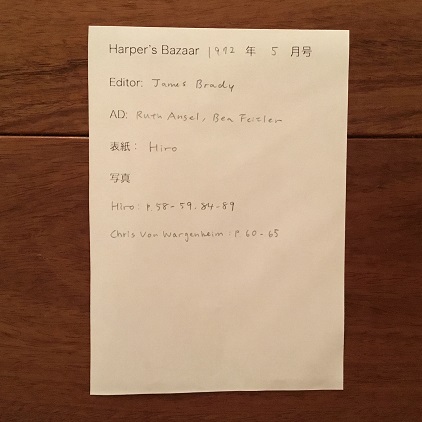 Harper's Bazaar 1972 年 5 月号
Editor: James Brady
AD: Ruth Ansel, Bea Feitler
表紙: Hiro
写真
Hiro: P.58-59.84-89
Chris Von Wargenheim: P.60-65